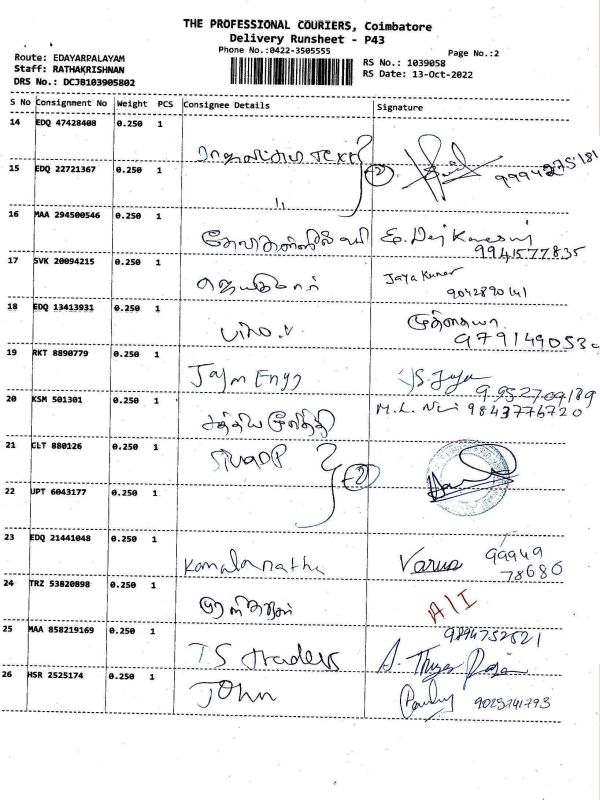 THE PROFESSIONAL COURIERS, Coimbatore
Delivery Runsheet - P43
Phone No.:0422-3505555
Page No.:2
Route: EDAYARPALAYAM
Staff: RATHAKRISHNAN
DRS No.: DCJB103905802
RS No.: 1039058
RS Date: 13-Oct-2022
S No Consignment No Weight PCS Consignee Details Signature
14 EDQ 47428408 0.250 1 Text
15 EDQ 22721367 0.250 1 ,, 2
16 MAA 294500546 0.250 1 9941577835
17 SVK 20094215 0.250 1 ஜெயகுமார் Jaya Kumar
9042890141
18 EDQ 13413931 0.250 1 முத்தையா
19 RKT 8890779 0.250 1 Jaym Engg
20 KSM 501301 0.250 1 M.L. 9843776720
21 CLT 880126 0.250 1 2
22 UPT 6043177 0.250 1
23 EDQ 21441048 0.250 1 Kamalanatha Varun 99949
78680
24 TRZ 53820898 0.250 1 A/I
25 MAA 858219169 0.250 1 TS traders 9894752521
26 HSR 2525174 0.250 1 John 9025741793